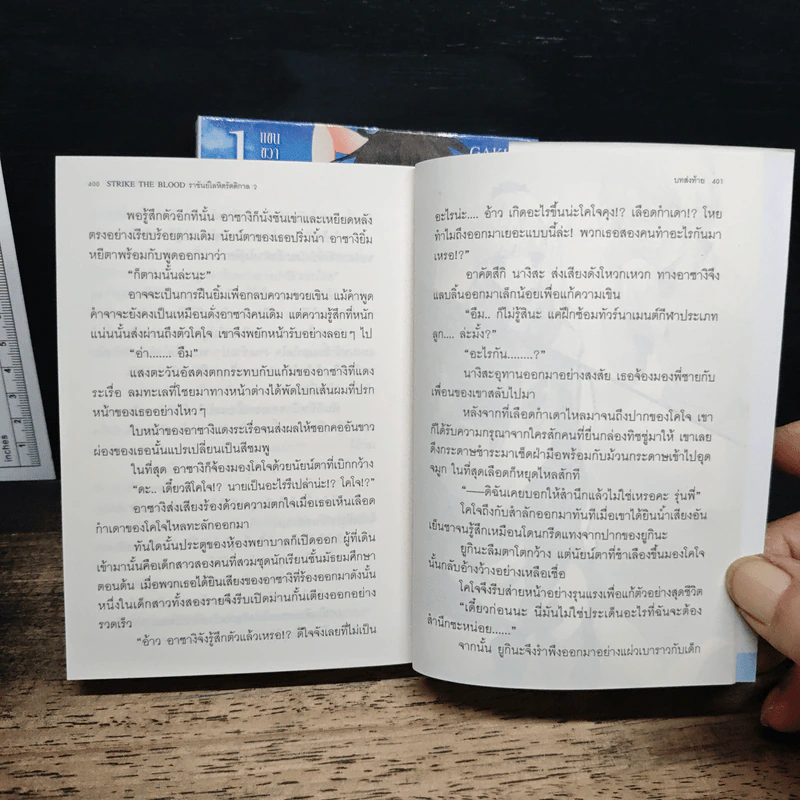 1
แขน
ขวา
GAK
inches
1
2
3
4
5
400 STRIKE THE BLOOD ราชันย์โลหิตรัตติกาล 2
พอรู้สึกตัวอีกทีนั้น อาซางิก็นั่งชันเข่าและเหยียดหลัง
ตรงอย่างเรียบร้อยตามเดิม นัยน์ตาของเธอปริ่มน้ำ อาซางิยิ้ม
หยีตาพร้อมกับพูดออกมาว่า
“ก็ตามนั้นล่ะนะ”
อาจจะเป็นการฝืนยิ้มเพื่อกลบความขวยเขิน แม้คำพูด
คำจาจะยังคงเป็นเหมือนดั่งอาซางิคนเดิม แต่ความรู้สึกที่หนัก
แน่นนั้นส่งผ่านถึงตัวโคโจ เขาจึงพยักหน้ารับอย่างลอยๆ ไป
“อ่า....... อืม”
แสงตะวันอัสดงตกกระทบกับแก้มของอาซางิที่แดง
ระเรื่อ ลมทะเลที่โชยมาทางหน้าต่างได้พัดโบกเส้นผมที่ปรก
หน้าของเธออย่างไหวๆ
ใบหน้าของอาซางิแดงระเรื่อจนส่งผลให้ซอกคออันขาว
ผ่องของเธอนั้นแปรเปลี่ยนเป็นสีชมพู
ในที่สุด อาซางิก็จ้องมองโคโจด้วยนัยน์ตาที่เบิกกว้าง
“ดะ.. เดี๋ยวสิโคโจ!? นายเป็นอะไรรึเปล่าน่ะ!? โคโจ!?”
อาซางิส่งเสียงร้องด้วยความตกใจเมื่อเธอเห็นเลือด
กำเดาของโคโจไหลทะลักออกมา
ทันใดนั้นประตูของห้องพยาบาลก็เปิดออก ผู้ที่เดิน
เข้ามานั้นคือเด็กสาวสองคนที่สวมชุดนักเรียนชั้นมัธยมศึกษา
ตอนต้น เมื่อพวกเธอได้ยินเสียงของอาซางิที่ร้องออกมาดังนั้น
หนึ่งในเด็กสาวทั้งสองรายจึงรีบเปิดม่านกั้นเตียงออกอย่าง
รวดเร็ว
“อ้าว อาซางิจังรู้สึกตัวแล้วเหรอ!? ดีใจจังเลยที่ไม่เป็น
บทส่งท้าย 401
อะไรน่ะ.... อ้าว เกิดอะไรขึ้นน่ะโคโจคุง!? เลือดกำเดา!? โหย
ทำไมถึงออกมาเยอะแบบนี้ล่ะ! พวกเธอสองคนทำอะไรกันมา
เหรอ!?”
อาคัตสึกิ นางิสะ ส่งเสียงดังโหวกเหวก ทางอาซางิจึง
แลบลิ้นออกมาเล็กน้อยเพื่อแก้ความเขิน
“อืม.. ก็ไม่รู้สินะ แค่ฝึกซ้อมทัวร์นาเมนต์กีฬาประเภท
ลูก.... ล่ะมั้ง?”
“อะไรกัน........?”
นางิสะอุทานออกมาอย่างสงสัย เธอจ้องมองพี่ชายกับ
เพื่อนของเขาสลับไปมา
หลังจากที่เลือดกำเดาไหลมาจนถึงปากของโคโจ เขา
ก็ได้รับความกรุณาจากใครสักคนที่ยื่นกล่องทิชชู่มาให้ เขาเลย
ดึงกระดาษชำระมาเช็ดฝ่ามือพร้อมกับม้วนกระดาษเข้าไปอุด
จมูก ในที่สุดเลือดก็หยุดไหลสักที
“──ดิฉันเคยบอกให้สำนึกแล้วไม่ใช่เหรอคะ รุ่นพี่”
โคโจถึงกับสำลักออกมาทันทีเมื่อเขาได้ยินน้ำเสียงอัน
เย็นชาจนรู้สึกเหมือนโดนกรีดแทงจากปากของยูกินะ
ยูกินะลืมตาโตกว้าง แต่นัยน์ตาที่ชำเลืองขึ้นมองโคโจ
นั้นกลับอ้างว้างอย่างเหลือเชื่อ
โคโจจึงรีบส่ายหน้าอย่างรุนแรงเพื่อแก้ตัวอย่างสุดชีวิต
“เดี๋ยวก่อนนะ นี่มันไม่ใช่ประเด็นอะไรที่ฉันจะต้อง
สำนึกซะหน่อย......”
จากนั้น ยูกินะจึงรำพึงออกมาอย่างแผ่วเบาราวกับเด็ก